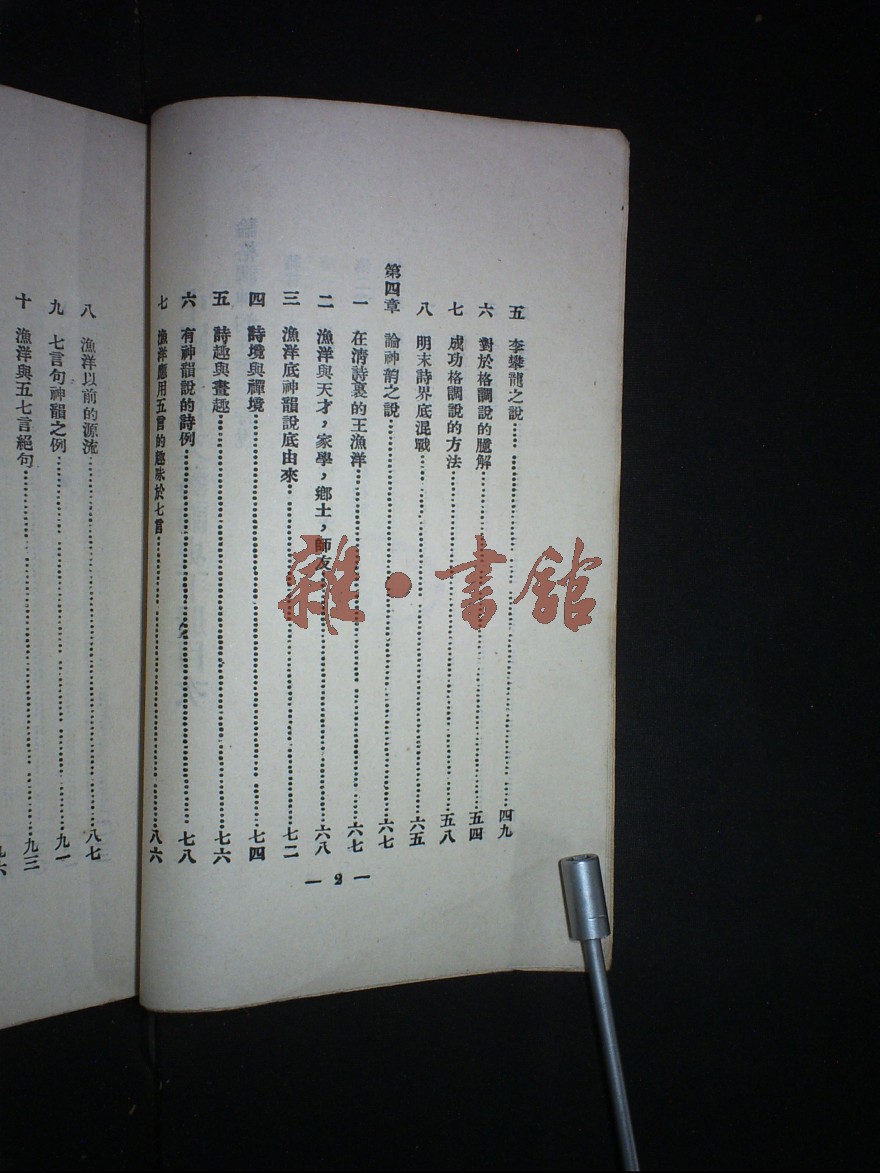 五　李攀龍之說……四九
六　對於格調說的臆解……五四
七　成功格調說的方法……五八
八　明末詩界底混戰……六五
第四章　論神韵之說……六七
一　在清詩裏的王漁洋……六七
二　漁洋與天才，家學，鄉土，師友……六八
三　漁洋底神韻說底由來……七二
四　詩境與禪境……七四
五　詩趣與畫趣……七六
六　有神韻說的詩例……七八
七　漁洋應用五言的趣味於七言……八六
— 2 —
八　漁洋以前的源流……八七
九　七言句神韻之例……九一
十　漁洋與五七言絕句……九三
九六
雜·書館